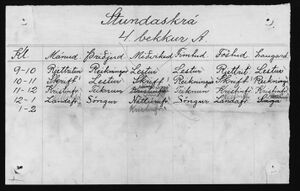 Stundaskrá
4 bekkur A.
Kl. Mánud Þriðjud Miðvikud Fimtud Föstud Laugard
9-10 Rjettritun Reikningur Lestur Lestur Rjettrit Lestur
10-11 Skrift Lestur Skrift Reikningur Skrift Reikning
11-12 Kristinfr Teiknun Teiknun Kristinfr Kristinfr
12-1 Landafr Söngur Náttúrufr Söngur Landafr Saga
1-2